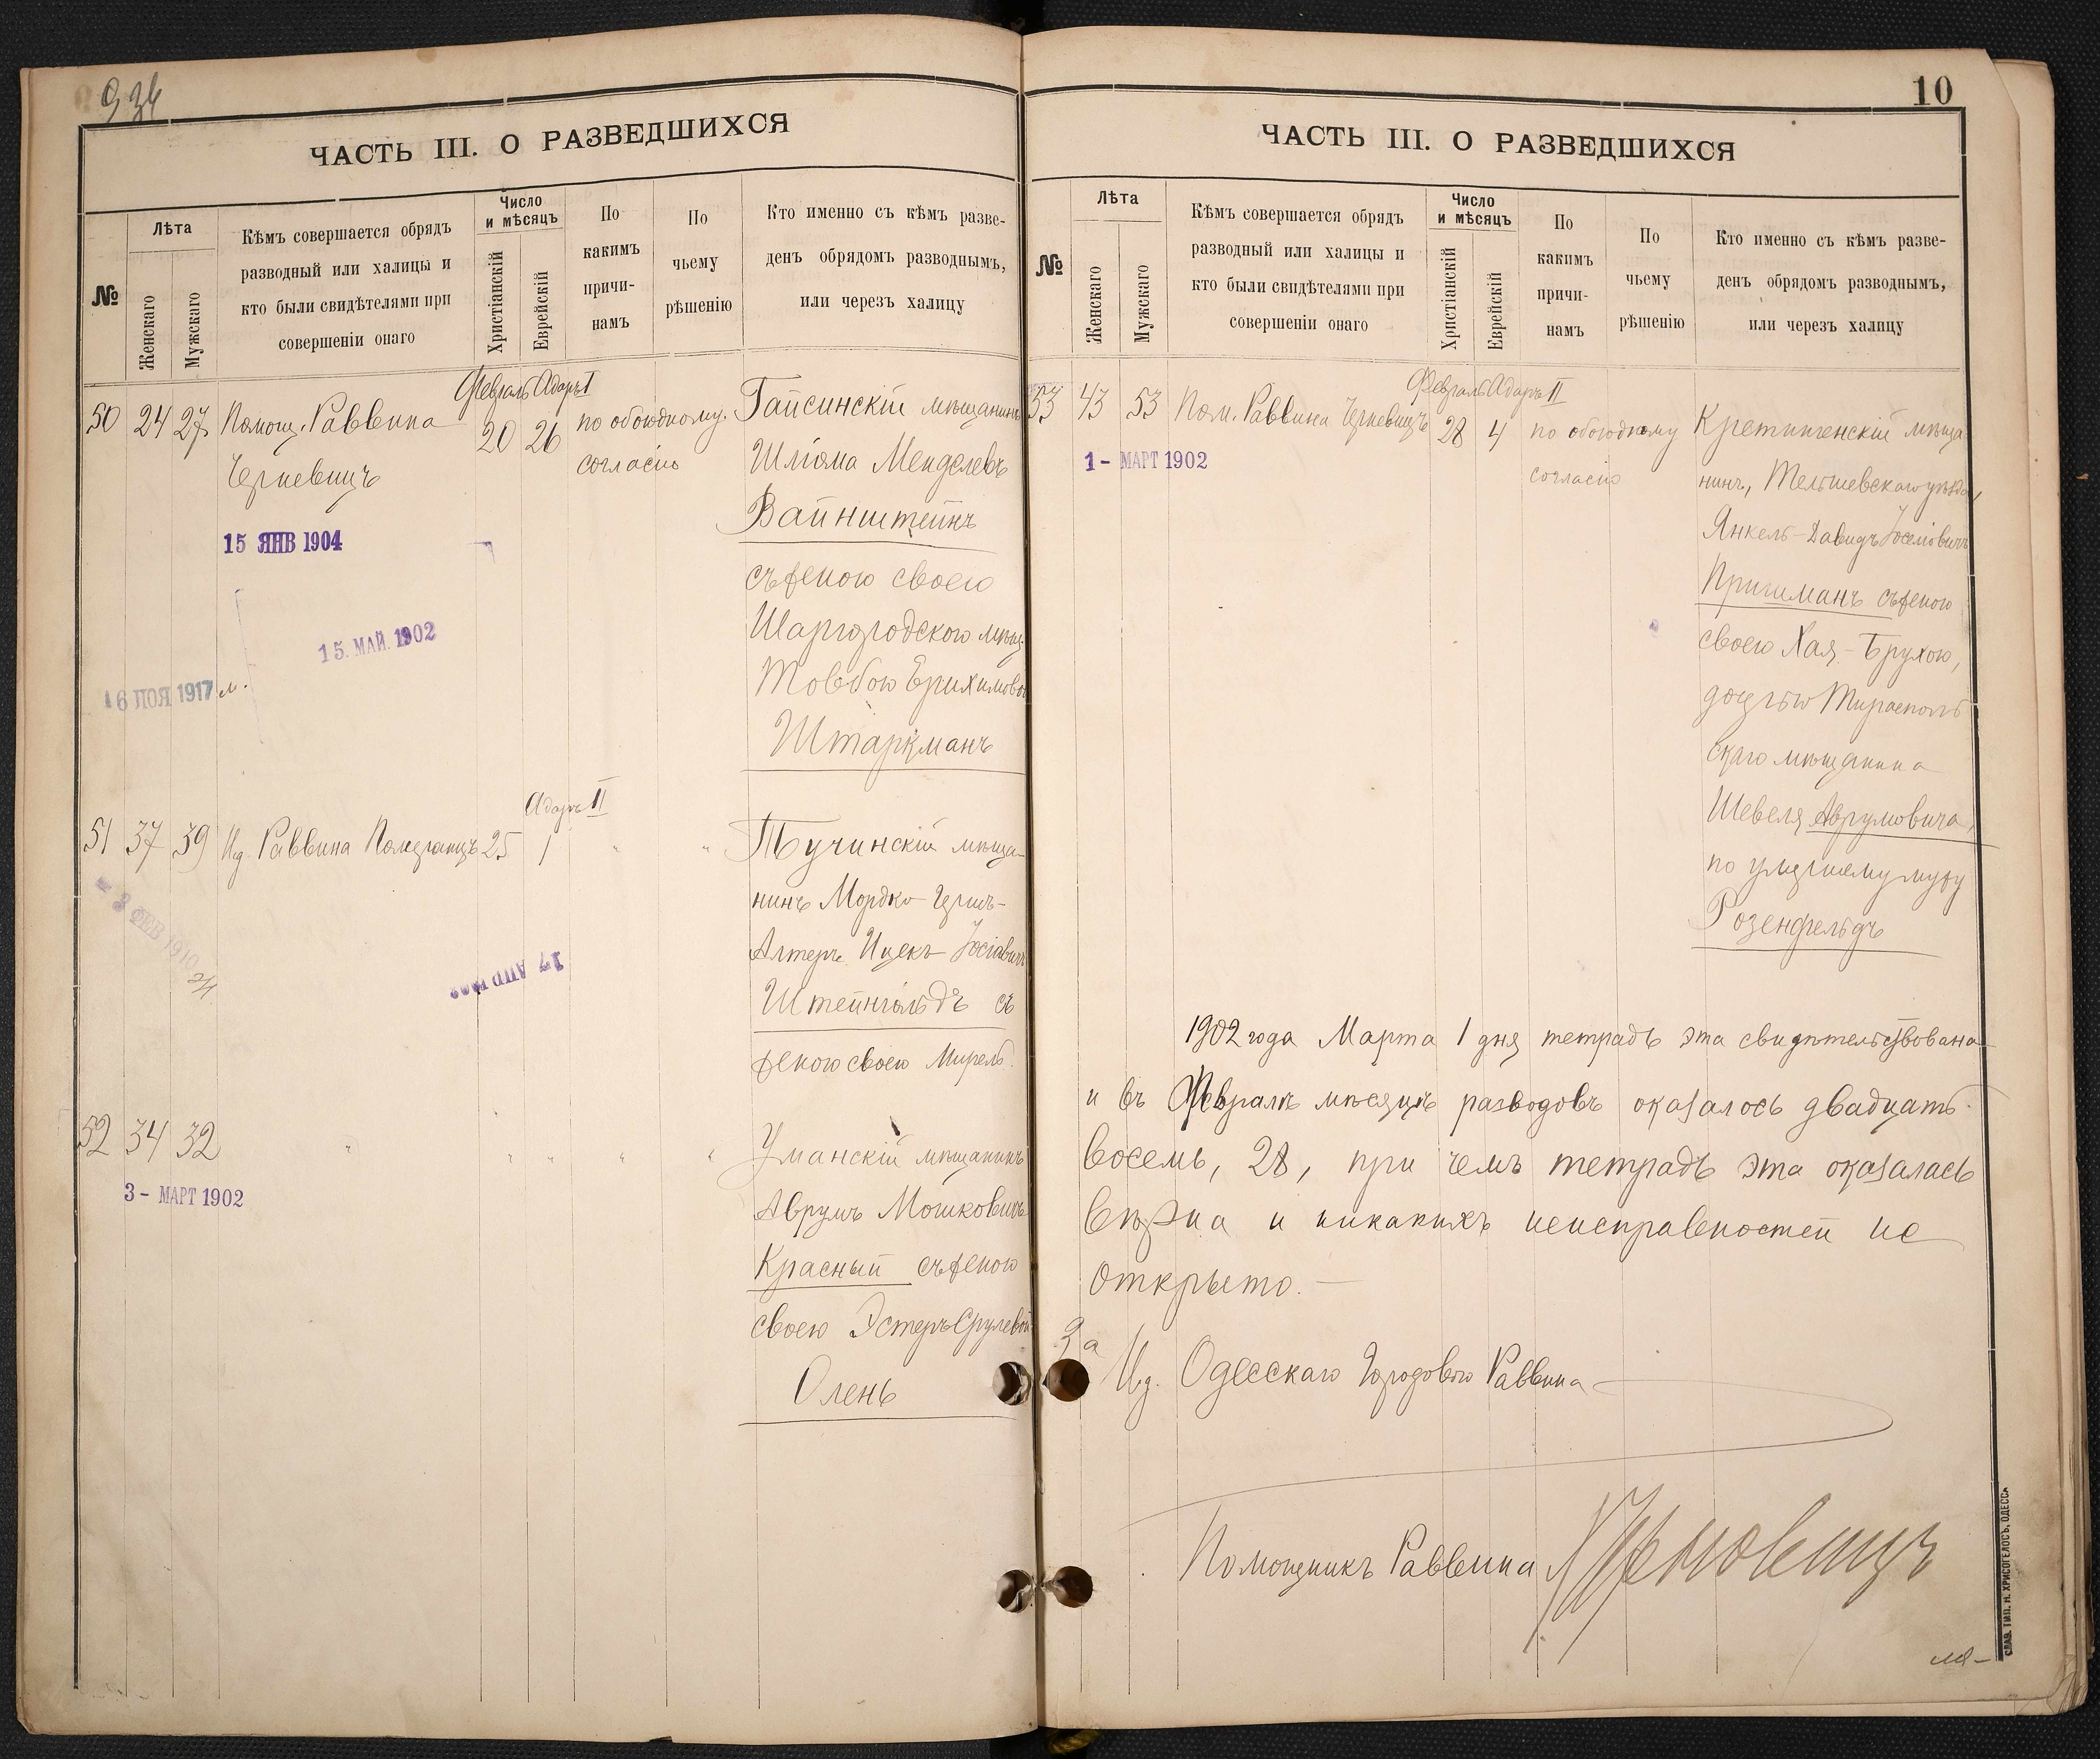 ЧАСТЬ III. О РАЗВЕДШИХСЯ
№
Лѣта
Женскаго
Мужскаго
Кѣмъ совершается обрядъ
разводный или халицы и
кто были свидѣтелями при
совершеніи онаго
Число
и мѣсяцъ
Христіанскій
Еврейскій
По
какимъ
причи-
намъ
По
чьему
рѣшенію
Кто именно съ кѣмъ разве-
денъ обрядомъ разводнымъ,
или черезъ халицу
Февраль Адаръ I
50 24 27 Помощ. Раввина 20 26 по обоюдному Гайсинскій мѣщанинъ
согласію
Шлёма Менделевъ
15 ЯНВ 1904
Вайнштейнъ
съ женою своею
15. МАЙ. 1902
Шаргородскою мѣщ.
16 НОЯ 1917
Товбою
Штаркманъ
Адаръ II
51 37 39 Ид. Раввина Померанцъ 25 1 " " Тучинскій мѣща-
нинъ Мордко-Гершъ-
- 3 ФЕВ 1910
Алтеръ Ицекъ
17 АПР
Штейнгольдъ съ
женою своею Мирель.
52 34 32 " " " " " Уманскій мѣщанинъ
3 - МАРТ 1902
Аврумъ Мошковичъ
Красный съ женою
своею Эстеръ Срулевой
Олень
10
ЧАСТЬ III. О РАЗВЕДШИХСЯ
№
Лѣта
Женскаго
Мужскаго
Кѣмъ совершается обрядъ
разводный или халицы и
кто были свидѣтелями при
совершеніи онаго
Число
и мѣсяцъ
Христіанскій
Еврейскій
По
какимъ
причи-
намъ
По
чьему
рѣшенію
Кто именно съ кѣмъ разве-
денъ обрядомъ разводнымъ,
или черезъ халицу
Февраль Адаръ II
53 43 53 Пом. Раввина 28 4 по обоюдному Кретингенскій мѣща-
1 - МАРТ 1902
согласію
нинъ, Тельшевскаго уѣзда,
Янкель-Давидъ
съ женою
своею Хая-Брухою,
дочерью Тирасполь
скаго мѣщанина
Шевеля Аврумовича,
по умершему мужу
Розенфельдъ
1902 года Марта 1 дня тетрадь эта свидѣтельствована
и въ Февралѣ мѣсяцѣ разводовъ оказалось двадцать
восемь, 28, при чемъ тетрадь эта оказалась
вѣрна и никакихъ неисправностей не
открыто. —
За Ид. Одесскаго Городового Раввина
Помощникъ Раввина
СЛАВ. ТИП. Н. ХРИСОГЕЛОСЪ, ОДЕССА